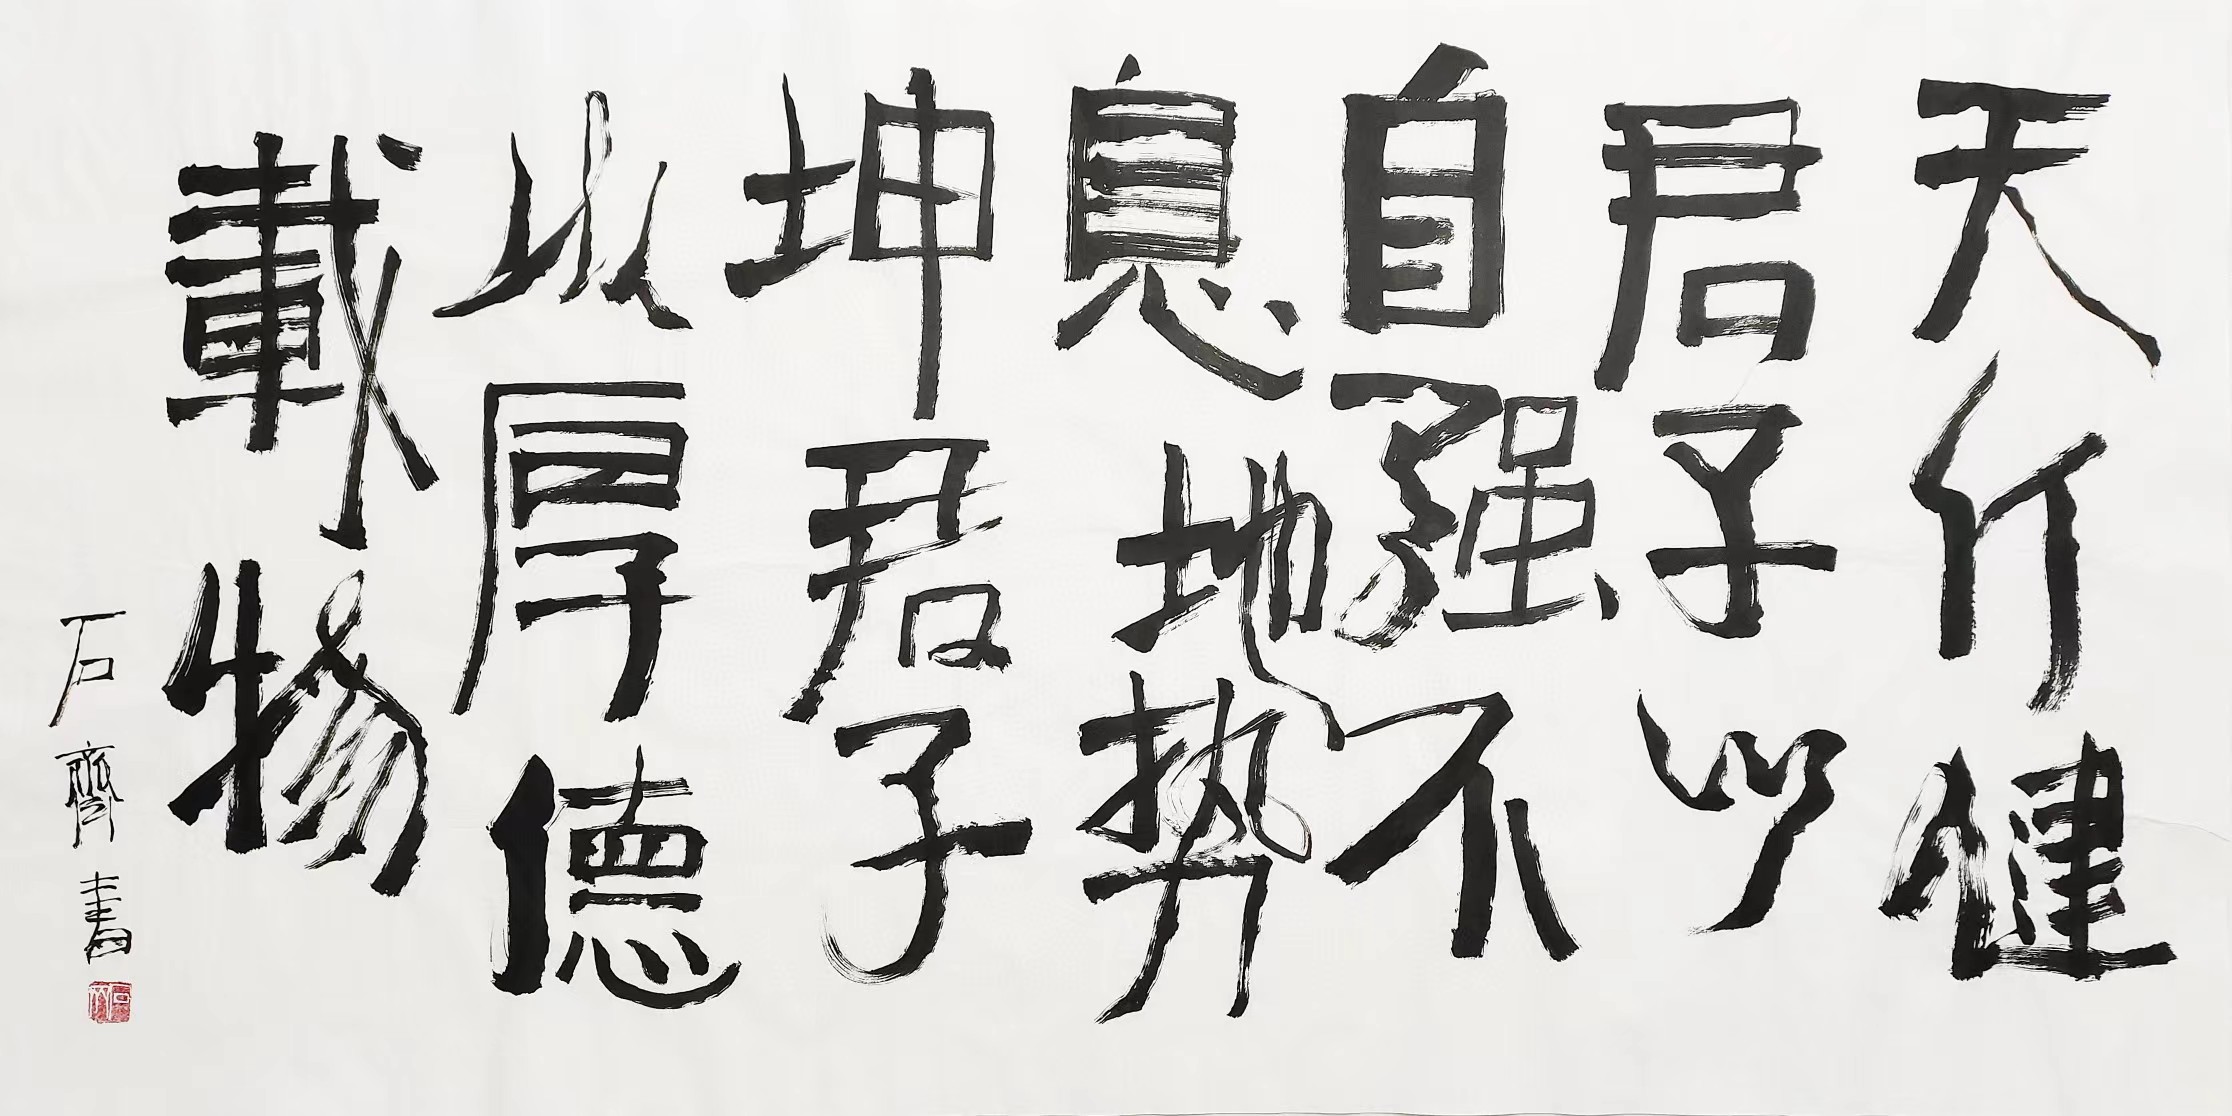 天行健
君子以
自强不
息地势
坤君子
以厚德
載物
石齊書